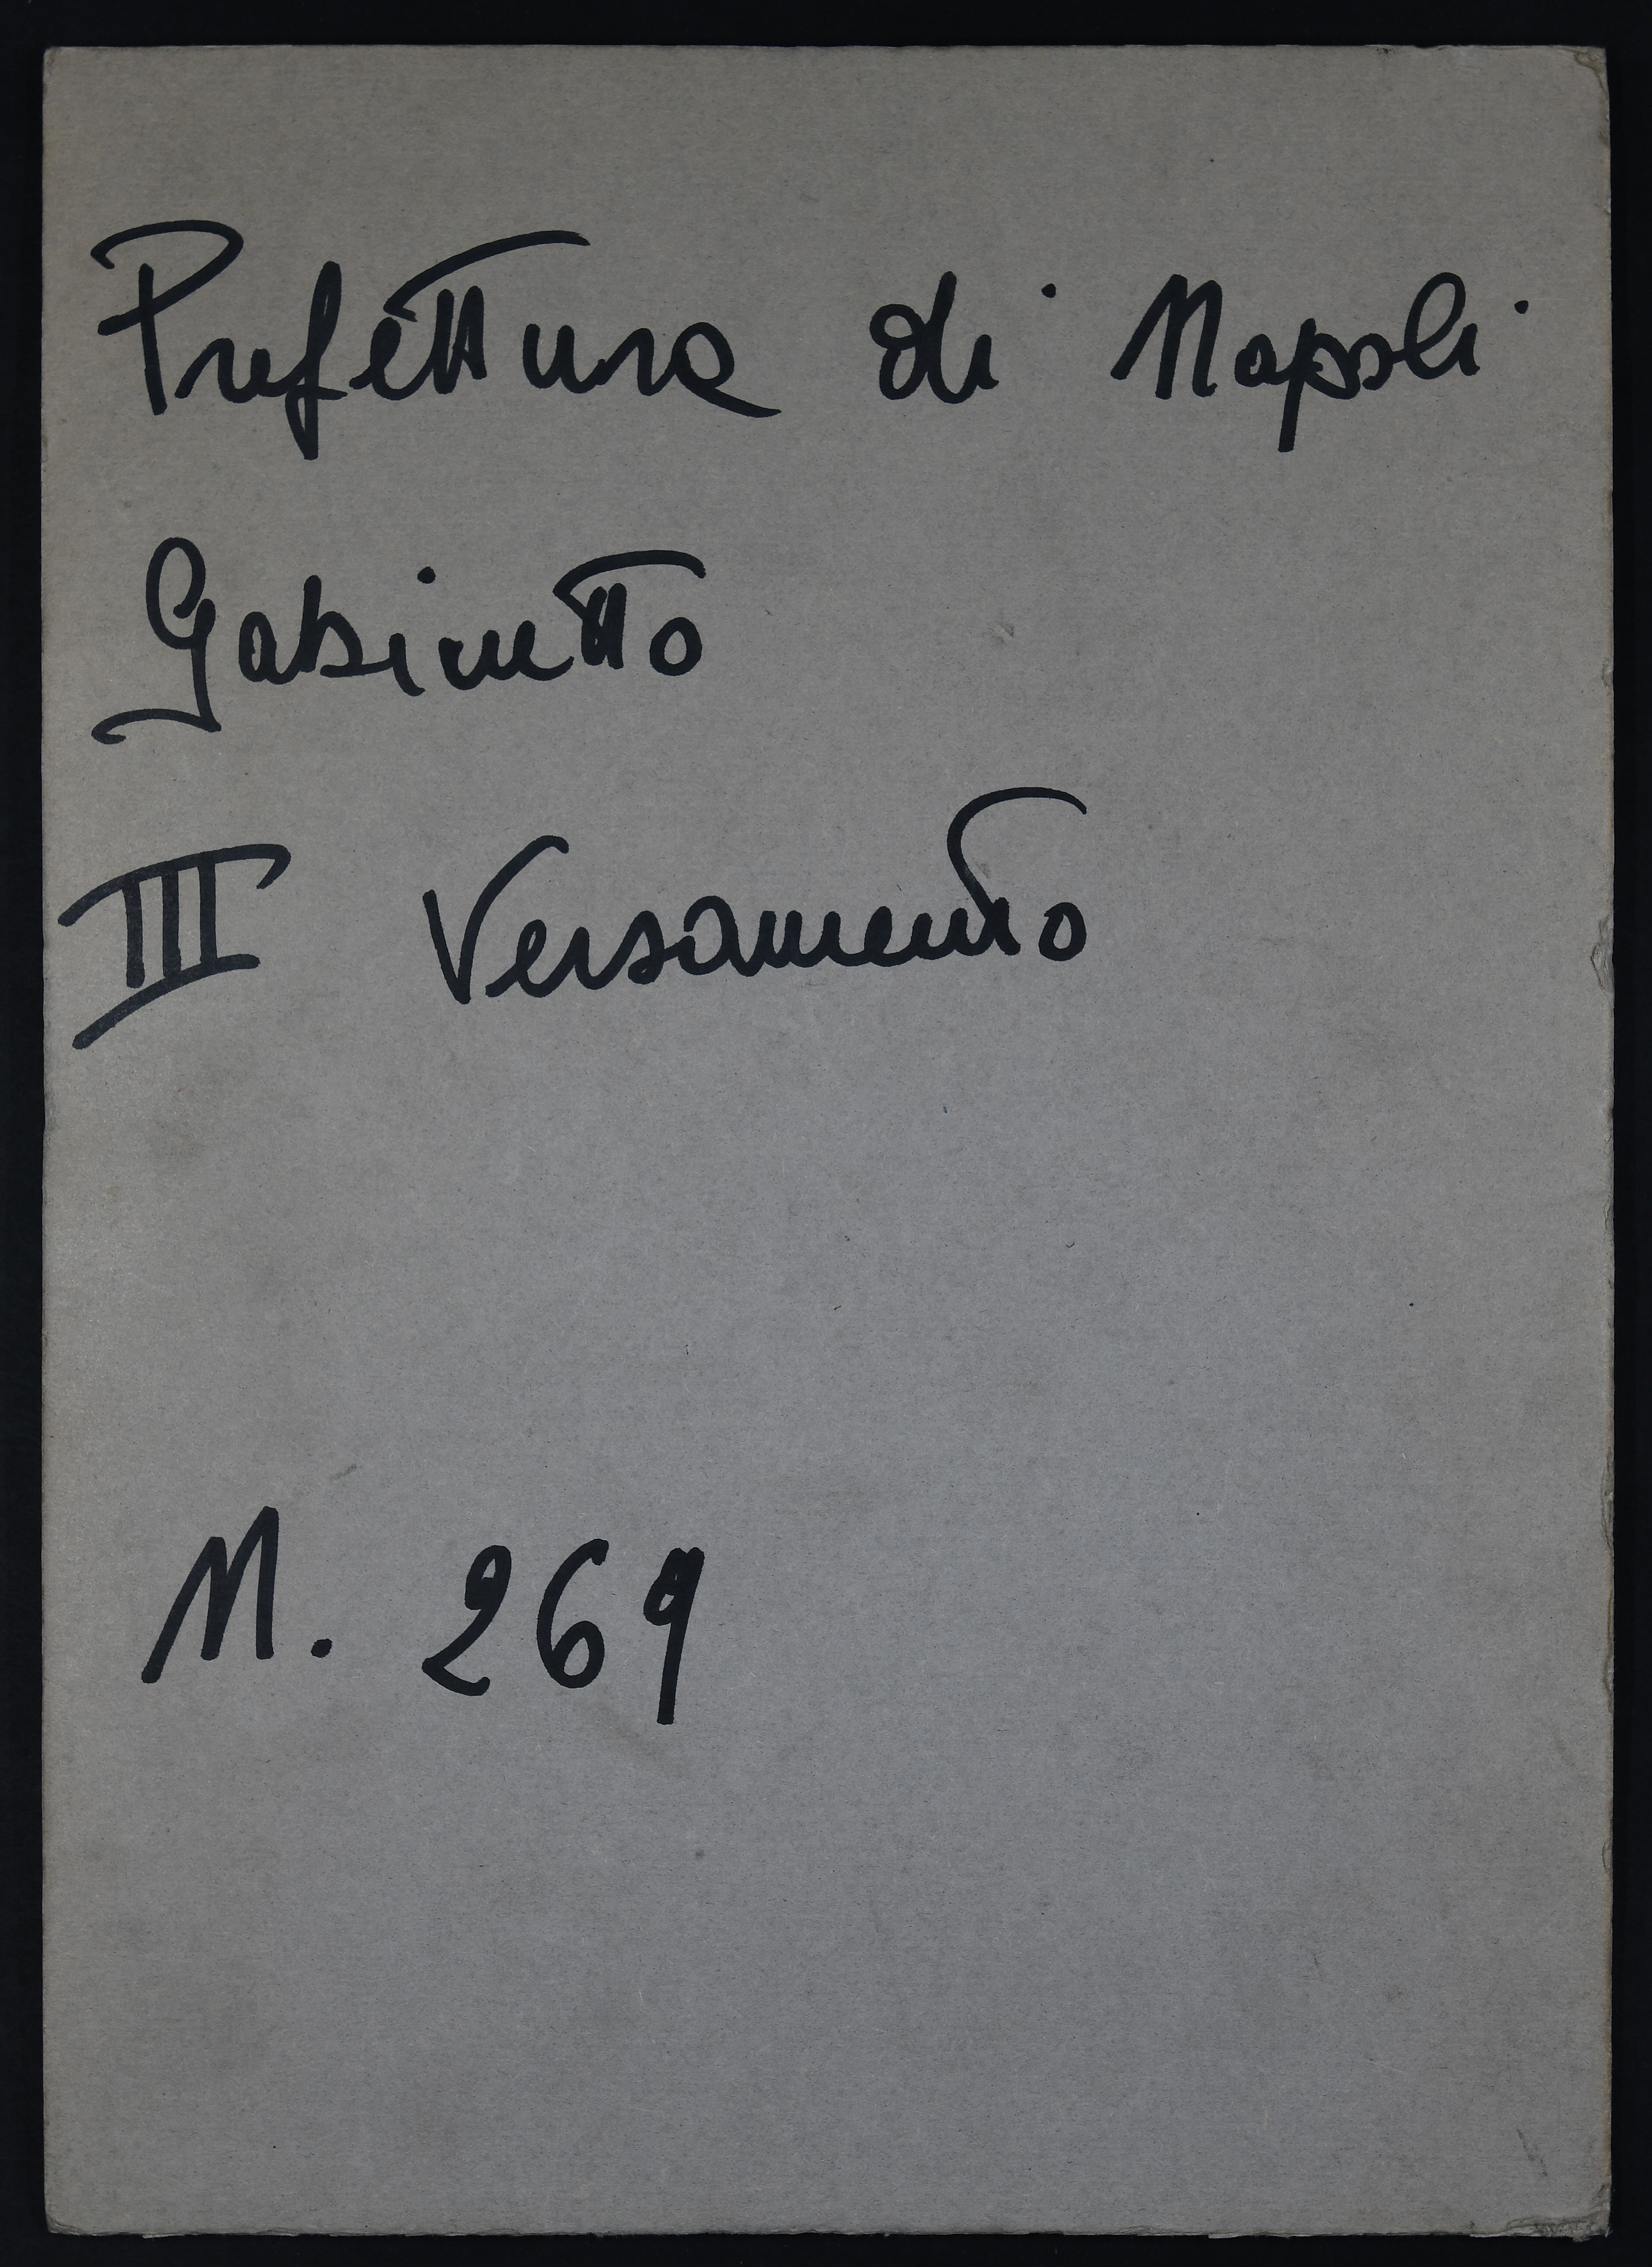 Prefettura di Napoli
Gabinetto
III Versamento
N. 269